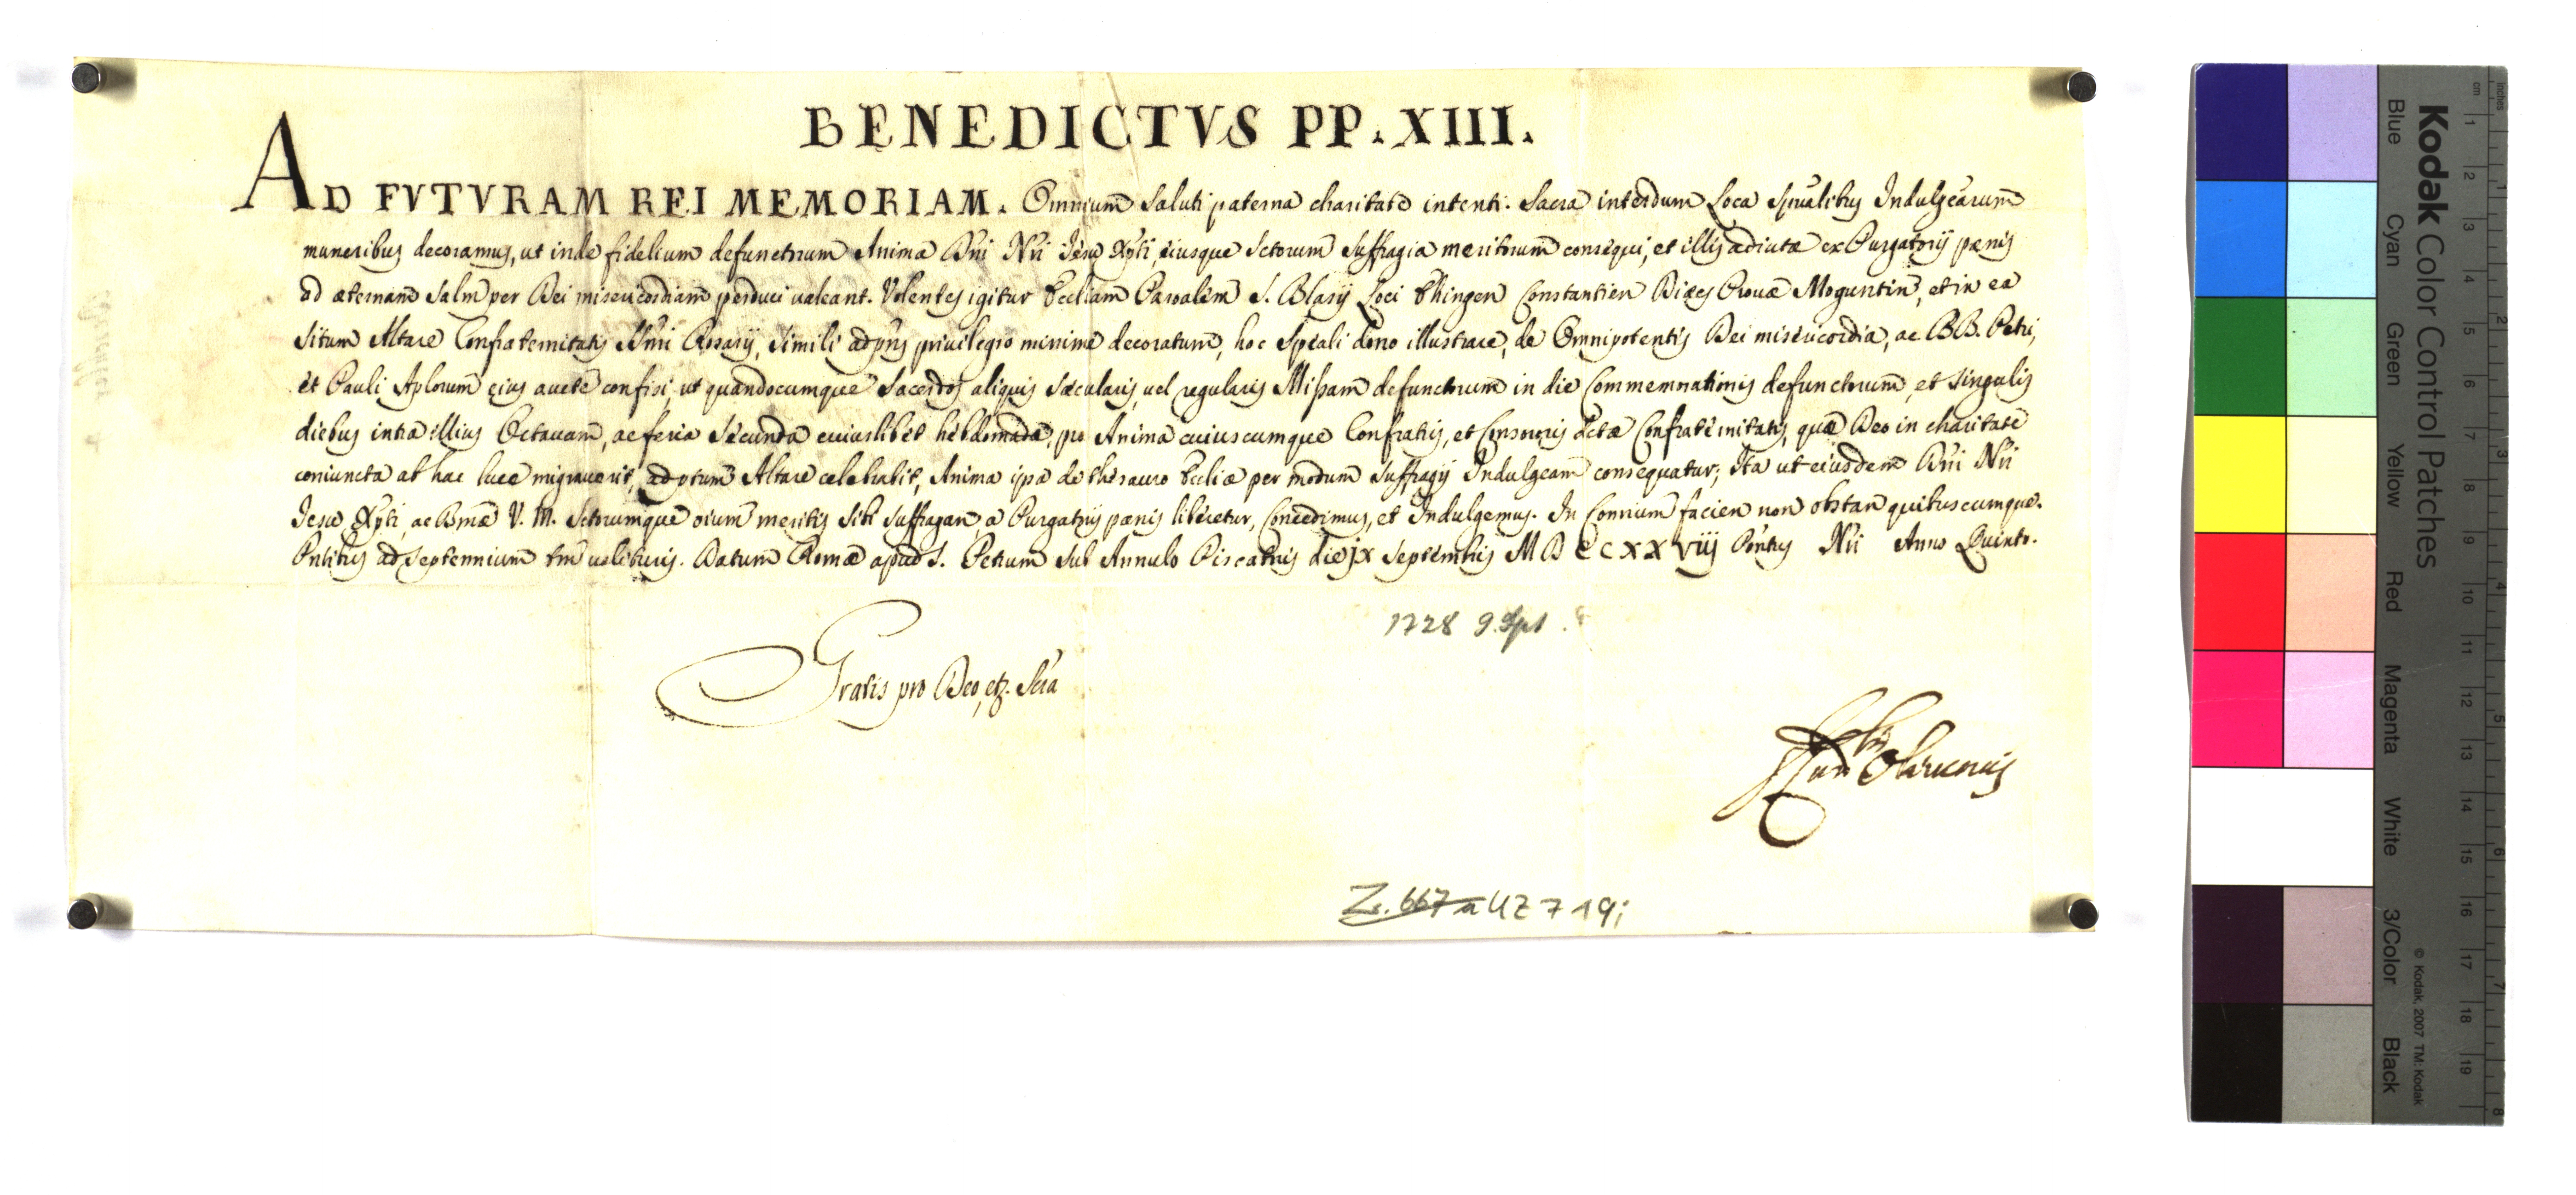 BENEDICTVS PP. XIII.
AD FVTVRAM REI MEMORIAM. Omnium saluti paterna charitate intenti. Sacra interdum Loca spualibus Indulgearum
muneribus decoramus, ut inde fidelium defunctorum Animæ Dni Nri Jesu Xpti, eiusque Sctorum suffragia meritorum consequi, et illis adiutæ ex Purgatorij pænis
ad æternam salm per Dei misericordiam perduci ualeant. Volentes igitur Eccliam Paroalem S. Blasij Loci Ehingen Constantien Diæcs Prouæ Moguntin, et in ea
situm Altare Confraternitatis SSmi Rosarij, simili ad pns priuilegio minime decoratum, hoc speali dono illustrare, de Omnipotentis Dei misericordia, ac BB. Petri,
et Pauli Aplorum eius aucte confisi, ut quandocumque Sacerdos aliquis Sæcularis, uel regularis Missam defunctorum in die Commemorationis defunctorum, et singulis
diebus intra illius Octauam, ac feria secunda cuiuslibet hebdomadæ, pro Anima cuiuscumque Confratris, et Consororis dctæ Confraternitatis, quæ Deo in charitate
coniuncta ab hac luce migrauerit, ad ptum Altare celebrabit, Anima ipsa de thesauro Eccliæ per modum suffragij Indulgeam consequatur; Ita ut eiusdem Dni Nri
Jesu Xpti, ac Bmæ V. M. Sctorumque oium meritis sibi suffragan, a Purgatorij pænis liberetur, Concedimus, et Indulgemus. In Conrium facien non obstan quibuscumque.
Pntibus ad septennium tm ualituris. Datum Romæ apud S. Petrum sub Annulo Piscatoris die jx Septembris MDCCXXViij Pontus Nri Anno Quinto.
1728 9. Spt.
Gratis pro Deo, etz. Scra
Z. 667 a UZ 719;
Kodak Color Control Patches
Blue Cyan Green Yellow Red Magenta White 3/Color Black
© Kodak, 2007 TM: Kodak
cm 1 2 3 4 5 6 7 8 9 10 11 12 13 14 15 16 17 18 19
inches 1 2 3 4 5 6 7 8